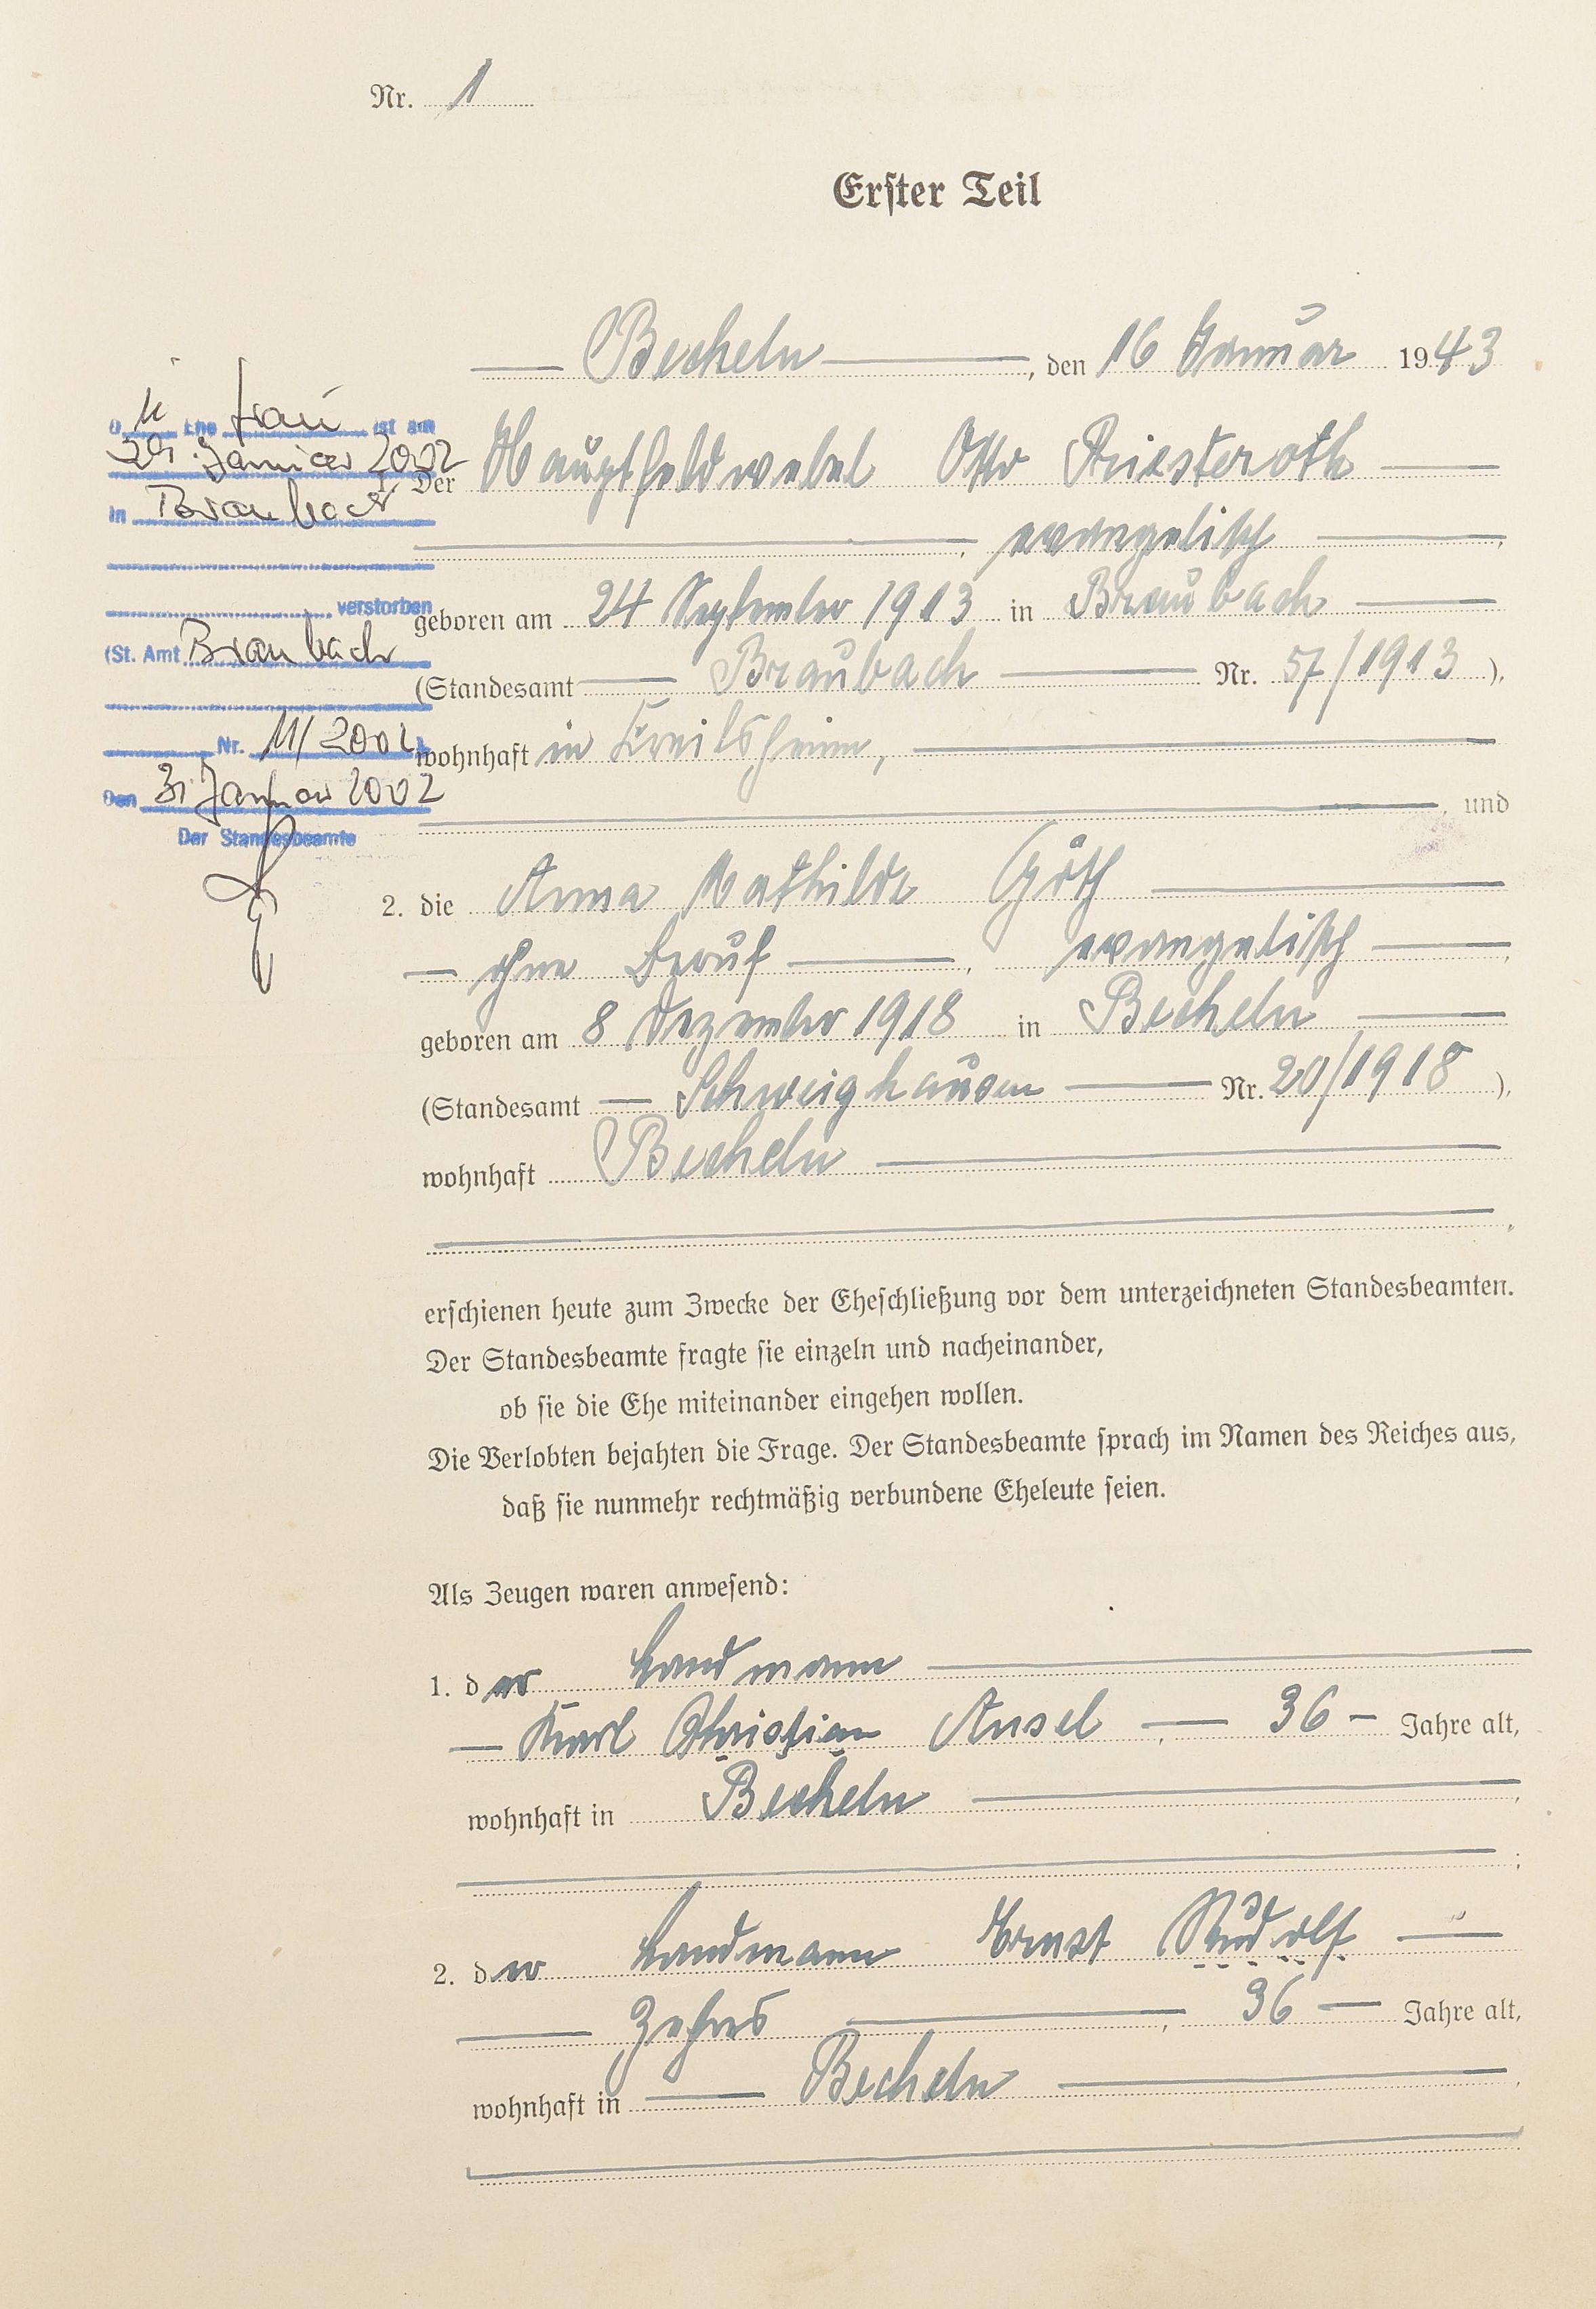 Nr. 1
Erster Teil
Becheln, den 16 Januar 1943
1. Der Hauptfeldwebel Otto Riesteroth
, evangelisch,
geboren am 24 September 1913 in Braubach
(Standesamt Braubach Nr. 57/1913),
wohnhaft in Kreilsheim,
, und
2. die Anna Mathilde Göth
ohne Beruf, evangelisch,
geboren am 8 Dezember 1918 in Becheln
(Standesamt Schweighausen Nr. 20/1918),
wohnhaft Becheln
,
erschienen heute zum Zwecke der Eheschließung vor dem unterzeichneten Standesbeamten.
Der Standesbeamte fragte sie einzeln und nacheinander,
ob sie die Ehe miteinander eingehen wollen.
Die Verlobten bejahten die Frage. Der Standesbeamte sprach im Namen des Reiches aus,
daß sie nunmehr rechtmäßig verbundene Eheleute seien.
Als Zeugen waren anwesend:
1. der Landmann
Karl Christian Ansel, 36 Jahre alt,
wohnhaft in Becheln,
;
2. der Landmann Ernst Rudolf
Zehres, 36 Jahre alt,
wohnhaft in Becheln,
Ehe frau ist am
Januar 2002
in Braubach
verstorben
(St. Amt Braubach
Nr. 11/2002
Den 31 Januar 2002
Der Standesbeamte